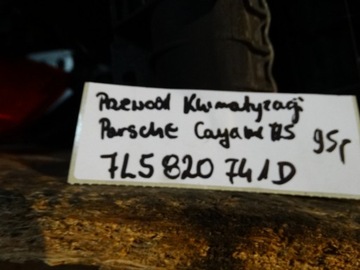 Przewód Klimatyzacji
Porsche Cayenne
95r
7L5 820 741D